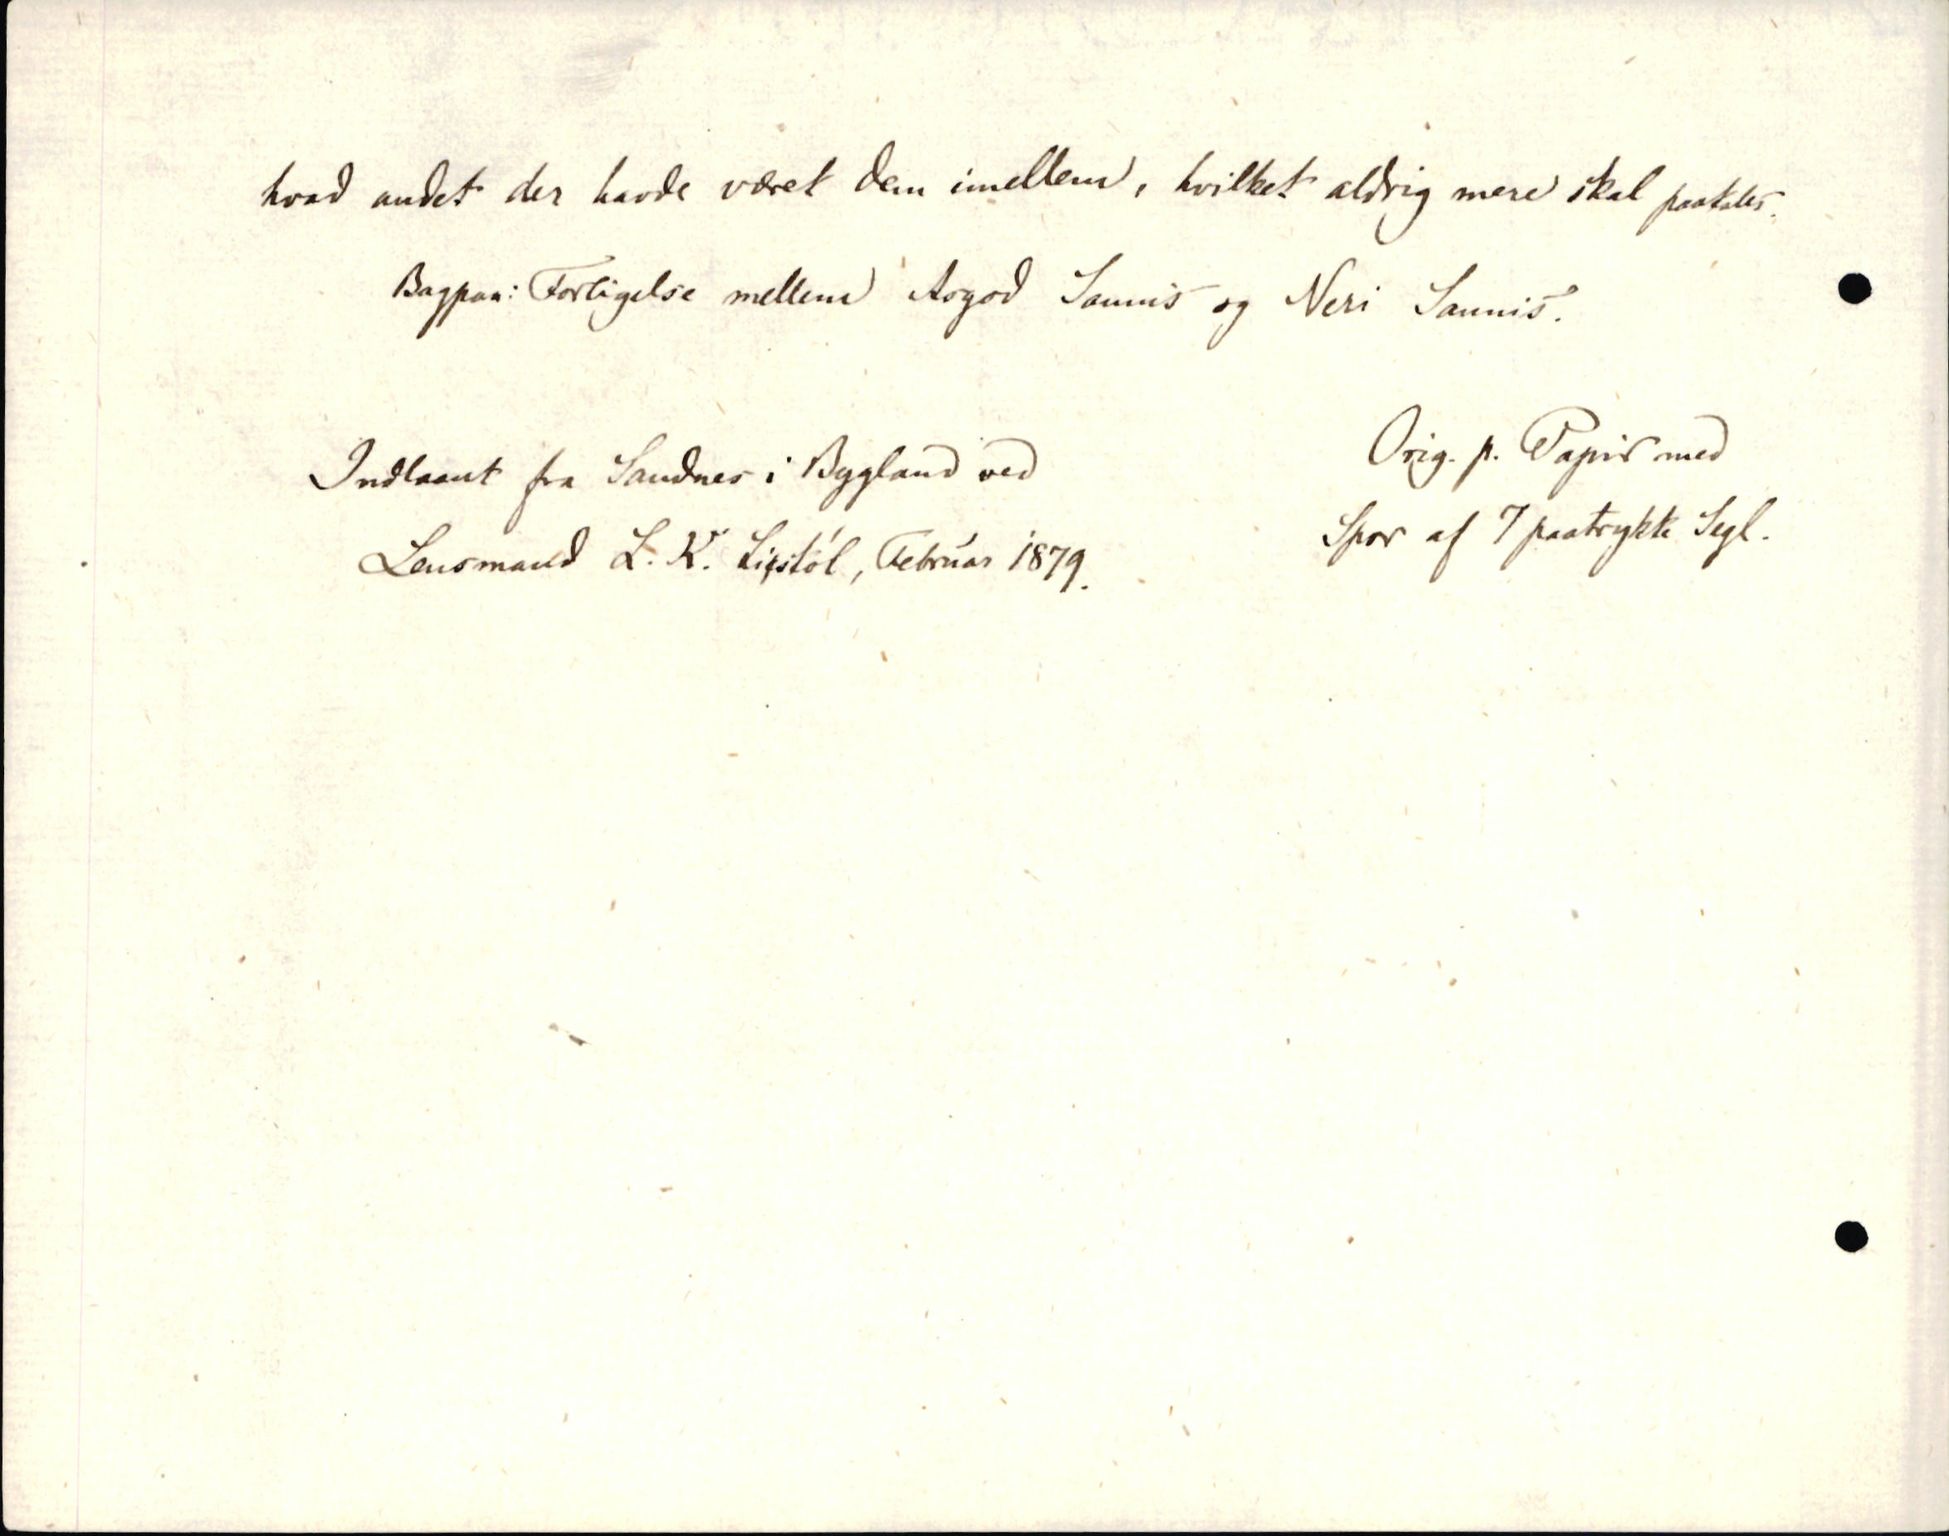 hvad andet der havde været dem imellem, hvilket aldrig mere skal paatales.
Bagpaa: Forligelse mellem Asgod Sannis og Neri Sannis.
Indlaant fra Sandnes i Bygland ved
Lensmand L. K. Liestøl, Februar 1879.
Orig. p. Papir med
Spor af 7 paatrykte Segl.